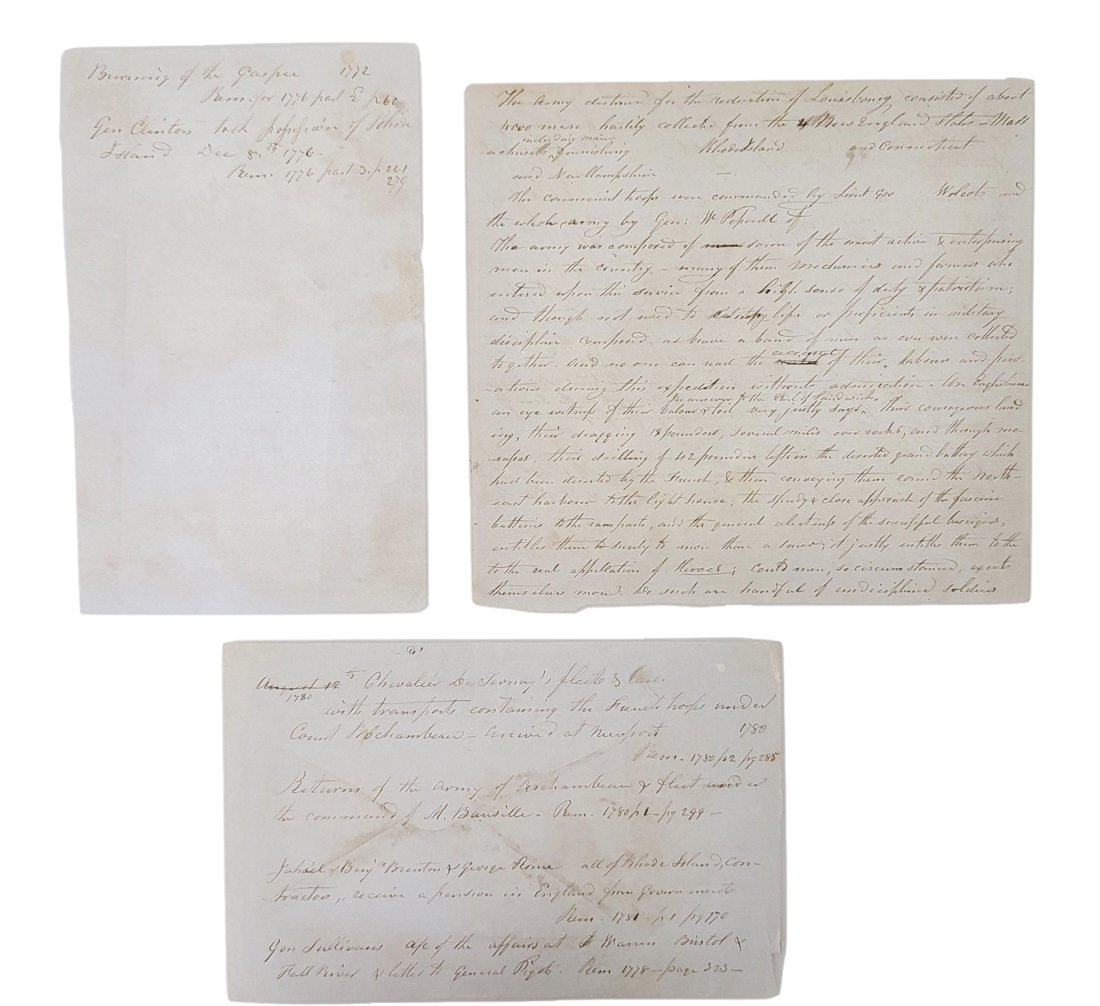 Burning of the Gaspee 1772
Rem. for 1776 part 2 p 60
Gen Clinton took possession of Rhode
Island Dec 8.th 1776 -
Rem. 1776 part 3. p 261
279
The army destined for the reduction of Louisbourg consisted of about
4000 men hastily collected from the 4 New England States - Mass
achusetts, including maine furnishing Rhode Island and Connecticut
and New Hampshire —
The Connecticut troops were commanded by Lieut Gov Wolcott and
the whole army by Gen: Wm Pepperell of
The army was composed of some of the most active & enterprising
men in the country, - many of them mechanics and farmers who
entered upon this service from a high sense of duty & patriotism;
and though not used to life or proficients in military
discipline composed as brave a band of men as ever were collected
together. and no one can read the account of their labours and priv-
-ations during this expedition without admiration. An Englishman
an eye witness of their valour & toil in answer to the Earl of Sandwich very justly says, their courageous land
ing, their dragging 18 pounders, several miles over rocks, and through mo-
rasses, their drilling of 42 pounders left in the deserted grand battery which
had been deserted by the French, & then conveying them round the North-
east harbour to the light house; the speedy & close approach of the fascine
batteries to the ramparts, and the general alertness of the successful besiegers,
entitles them to surely to more than a sneer; it justly entitles them to the
to the real appellation of Heroes; could men, so circumstanced, exert
themselves more? Do such are handful of undiciplined soldiers
August 12th Chevalier De Ternay's fleet
1780
with transports containing the French troops under
Count Rochambeau - arrived at Newport 1780
Rem. 1780 p 2 pg 285
Returns of the army of Rochambeau & fleet under
the command of M. - Rem. 1780 p 1 - pg 299 -
Jahleel & Benj Brenton & George Rome all of Rhode Island, con-
-tractors, receive a pension in England from Government
Rem. 1781 - p 1 pg 170
Gen Sullivans a/c of the affairs at Warren Bristol &
Fall River & letter to General Pigot. Rem 1778 - page 323 -